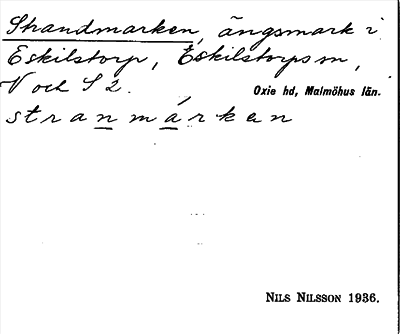 Strandmarken, ängsmark i
Eskilstorp, Eskilstorps sn,
V och S 2. Oxie hd, Malmöhus län.
stranmárken
NILS NILSSON 1936.